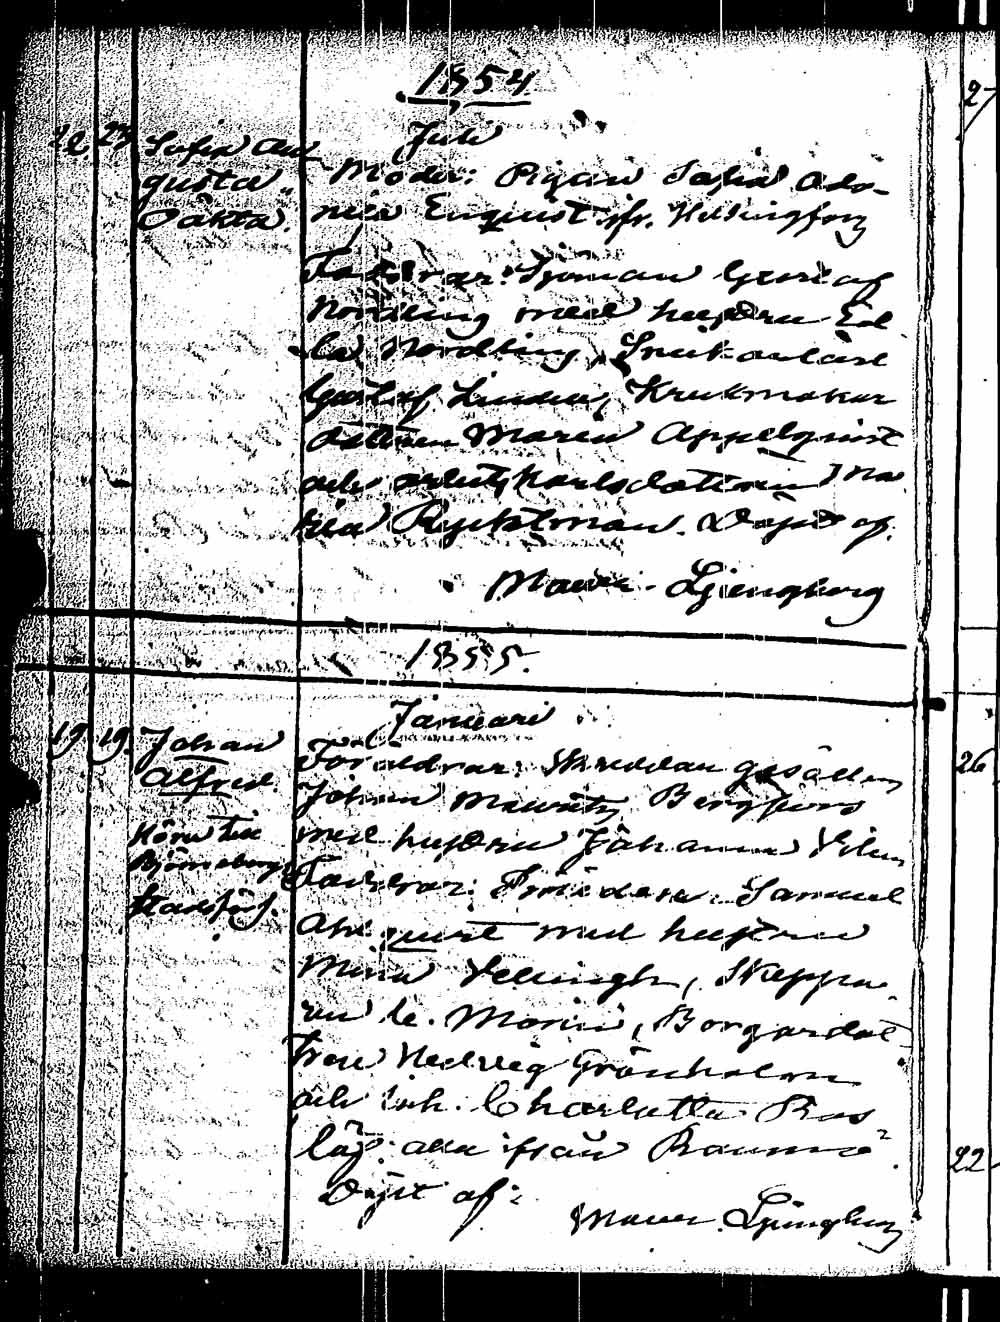 1854
27
Juli
22 23 Sofia Au-
gusta
Oäkta.
Moder: Pigan Sofia Ado-
Enquist fr. Helsingfors
Faddrar: Sjöman Gustaf
Nordling med hustru Ed
la Nordling,
Gustaf Linden, Krukmakar
dottren Maria Appelqvist
och arbetskarlsdottren Ma
ria Ryktman. Döpt af
Maur. Ljungberg
1855.
Januari
19 19 Johan
Alfred.
Hörer till
Björneborgs
stadsförs.
Föräldrar: Skräddare gesällen
Johan Mauritz Bergfors
med hustru Johanna
Faddrar: Samuel
med hustru
Mina Vellingh, Skeppa-
ren C. Morin, Borgardot
tren Hedvig Grönholm
och inh. Charlotta Ros
löf. alla ifrån Raumo
Döpt af:
Maur. Ljungberg
26
22